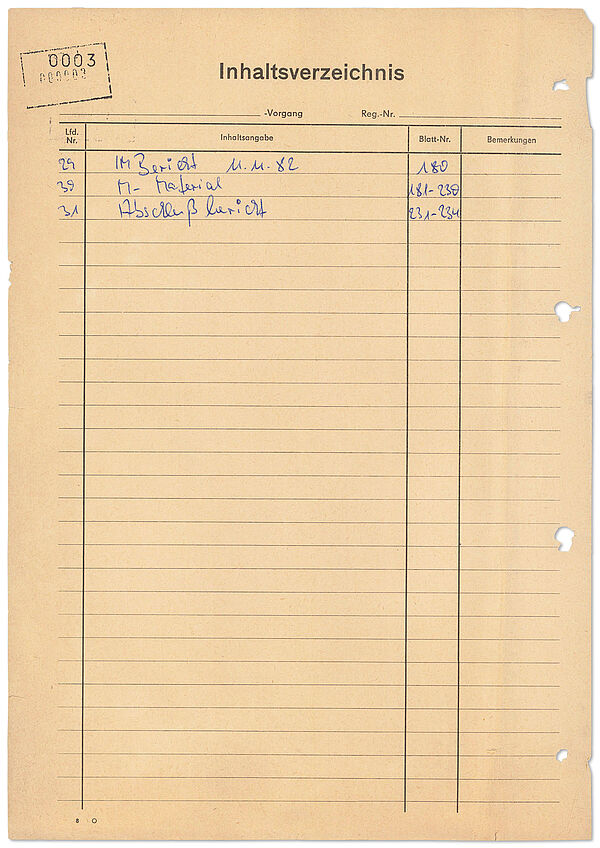 0003
000002
Inhaltsverzeichnis
-Vorgang Reg.-Nr.
Lfd. Nr. Inhaltsangabe Blatt-Nr. Bemerkungen
29 IM Bericht 11.11.82 180
30 M-Material 181-230
31 Abschlußbericht 231-234
8 O